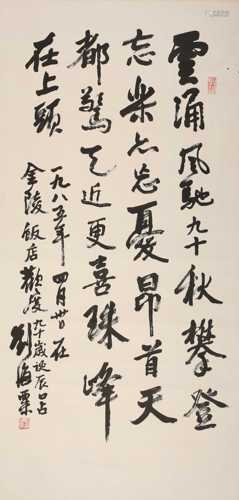 雲涌風馳九十秋攀登
忘樂亦忘憂昂首天
都驚天近更喜珠峰
在上頭
一九八五年四月日在
金陵飯店歡度九十歲誕辰口占
劉海粟